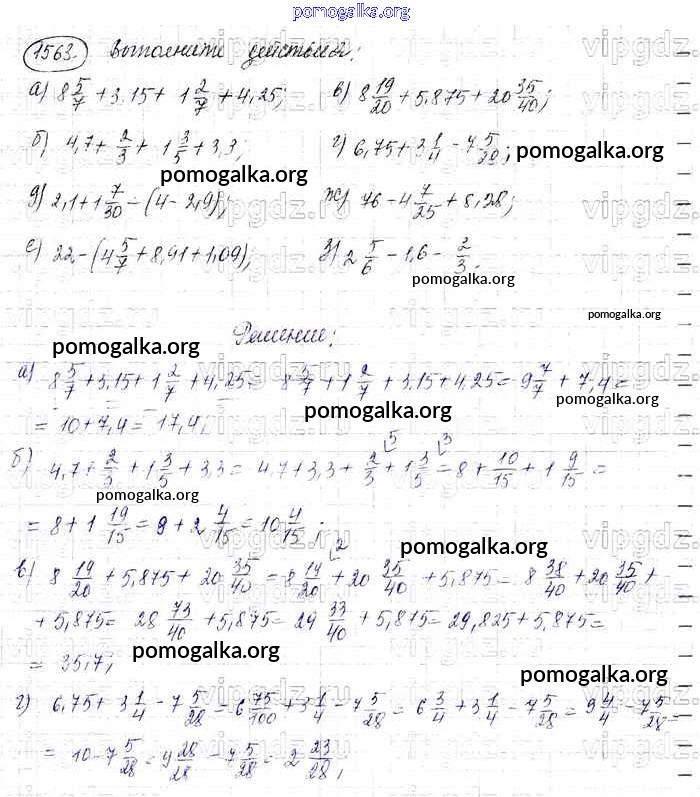 pomogalka.org
1563. Выполните действия:
а) 8 5/7 + 3,15 + 1 2/7 + 4,25; в) 8 19/20 + 5,875 + 20 35/40;
б) 4,7 + 2/3 + 1 3/5 + 3,3; г) 6,75 + 3 1/4 - 7 5/28; pomogalka.org
pomogalka.org
д) 2,1 + 1 7/30 - (4 - 2,9); ж) 76 - 4 7/25 + 8,28;
е) 22 - (4 5/7 + 8,91 + 1,09); з) 2 5/6 - 1,6 - 2/3.
pomogalka.org
pomogalka.org
Решение:
pomogalka.org
pomogalka.org
а) 8 5/7 + 3,15 + 1 2/7 + 4,25 = 8 5/7 + 1 2/7 + 3,15 + 4,25 = 9 7/7 + 7,4 =
pomogalka.org
pomogalka.org
= 10 + 7,4 = 17,4;
б) 4,7 + 2/3 + 1 3/5 + 3,3 = 4,7 + 3,3 + 2/3 ⌊5 + 1 3/5 ⌊3 = 8 + 10/15 + 1 9/15 =
pomogalka.org
= 8 + 1 19/15 = 9 + 2 4/15 = 10 4/15;
pomogalka.org
в) 8 19/20 + 5,875 + 20 35/40 = 8 19/20 ⌊2 + 20 35/40 + 5,875 = 8 38/40 + 20 35/40 +
+ 5,875 = 28 73/40 + 5,875 = 29 33/40 + 5,875 = 29,825 + 5,875 =
= 35,7;
pomogalka.org
pomogalka.org
г) 6,75 + 3 1/4 - 7 5/28 = 6 75/100 + 3 1/4 - 7 5/28 = 6 3/4 + 3 1/4 - 7 5/28 = 9 4/4 - 7 5/28
= 10 - 7 5/28 = 9 28/28 - 7 5/28 = 2 23/28;